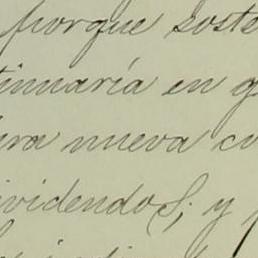 porque soste
tinuaría en g
ra nueva cu
ividendos; y p